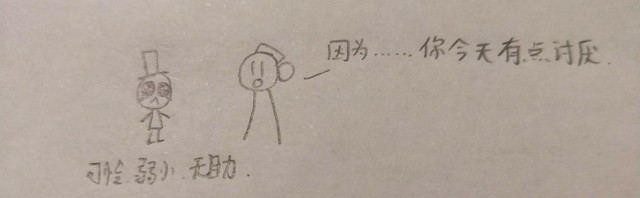 因为……你今天有点讨厌.
可怜 弱小 无助.